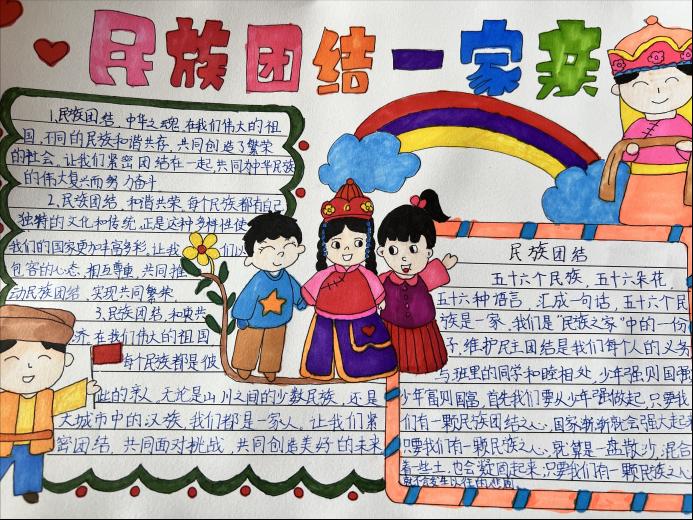 民族团结一家亲
1.民族团结,中华之魂,在我们伟大的祖
国,不同的民族和谐共存,共同创造了繁荣
的社会,让我们紧密团结在一起,共同为中华民族
的伟大复兴而努力奋斗
2.民族团结,和谐共荣,每个民族都有自己
独特的文化和传统,正是这种多样性使
我们的国家更加丰富多彩。让我们以
包容的心态,相互尊重,共同推
动民族团结,实现共同繁荣
3.民族团结,和衷共
济,在我们伟大的祖国
每个民族都是彼
此的亲人,无论是山川之间的少数民族,还是
大城市中的汉族,我们都是一家人。让我们紧
密团结,共同面对挑战,共同创造美好的未来
民族团结
五十六个民族,五十六朵花,
五十六种语言,汇成一句话,五十六个民
族是一家,我们是“民族之家”中的一份
子,维护民主团结是我们每个人的义务
与班里的同学和睦相处,少年强则国强
少年富则国富,首先我们要从少年强做起,只要我
们有一颗民族团结之心,国家渐渐就会强大起来
只要我们有一颗民族之心,就算是一盘散沙,混合
着一些土,也会凝固起来,只要我们有一颗民族之心